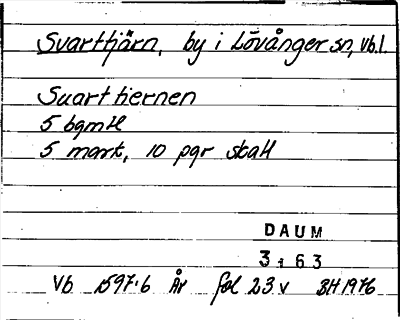 Svarttjärn, by i Lövånger sn, Vb.l.
Suarttiernen
5 bgmtl
5 mark, 10 pgr skatt
DAUM
3163
Vb 1597:6 År fol 23 v BH 1976